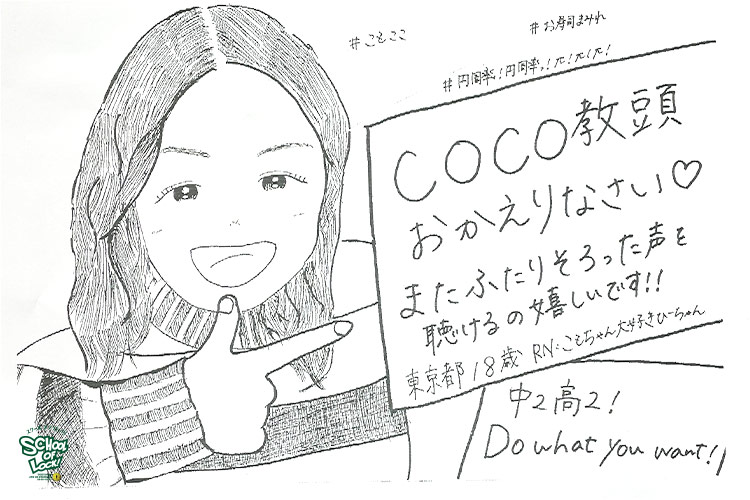 #こもここ
#お寿司まみれ
#円周率!円周率っ!π!π!π!
COCO教頭
おかえりなさい♡
またふたりそろった声を
聴けるの嬉しいです!!
東京都 18歳 RN:こもちゃん大好きぴーちゃん
中2高2!
Do what you want!
SCHOOL
OF
LOCK!